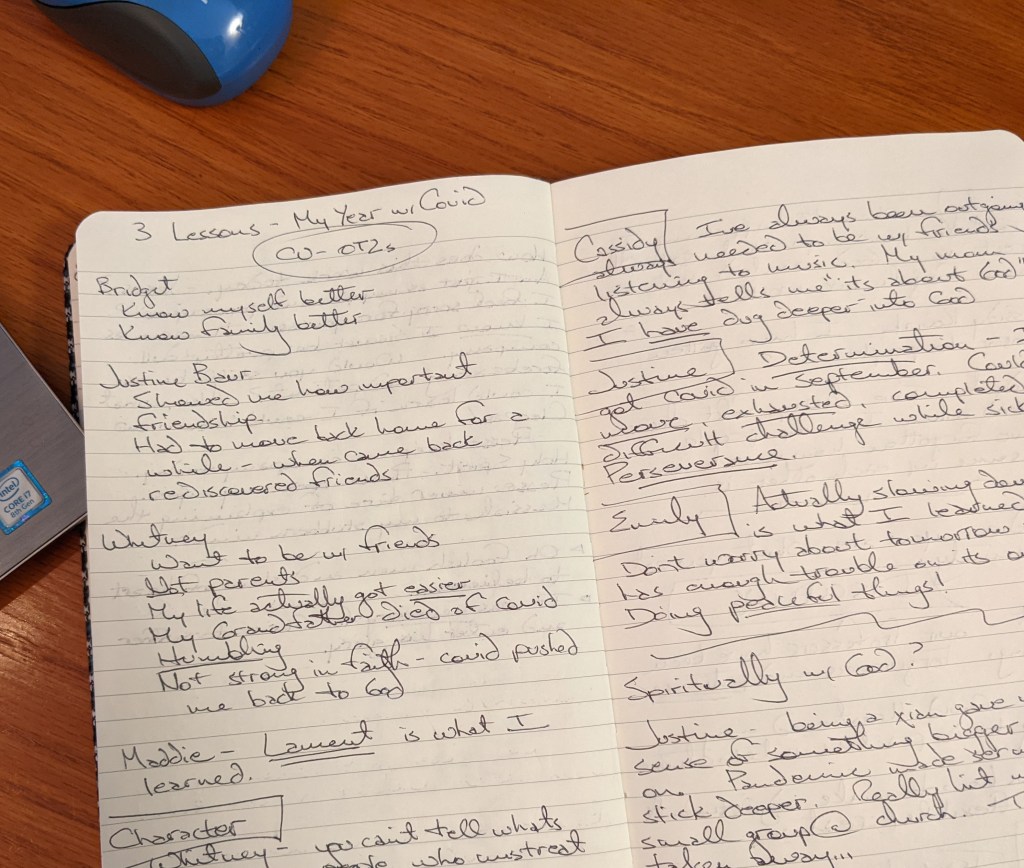 3 Lessons - My Year w/ Covid
CU - OT2s
Bridget
Know myself better
Know family better
Justine Baur
Showed me how important
friendship.
Had to move back home for a
while - when came back
rediscovered friends.
Whitney
Want to be w/ friends
Not parents
My life actually got easier
My Grandfather died of Covid
Humbling
Not strong in faith - covid pushed
me back to God
Maddie - Lament is what I
learned.
Character
Whitney - you can't tell whats
who mistreat
Cassidy I've always been
always needed to be w/ friends
lystening to music. My mom
always tells me "its about God"
I have dug deeper into God
Justine Determination -
got Covid in September.
move, exhausted, completed
difficult challenge while sick
Perseverance.
Emily Actually slowing
is what I learned
Dont worry about tomorrow
has enough trouble on its
Doing peaceful things!
Spiritually w/ God?
Justine - being a xian gave
sense of something bigger
on. Pandemic made
stick deeper. Really hit
small group @ church.
taken away...
intel
CORE i7
8th Gen